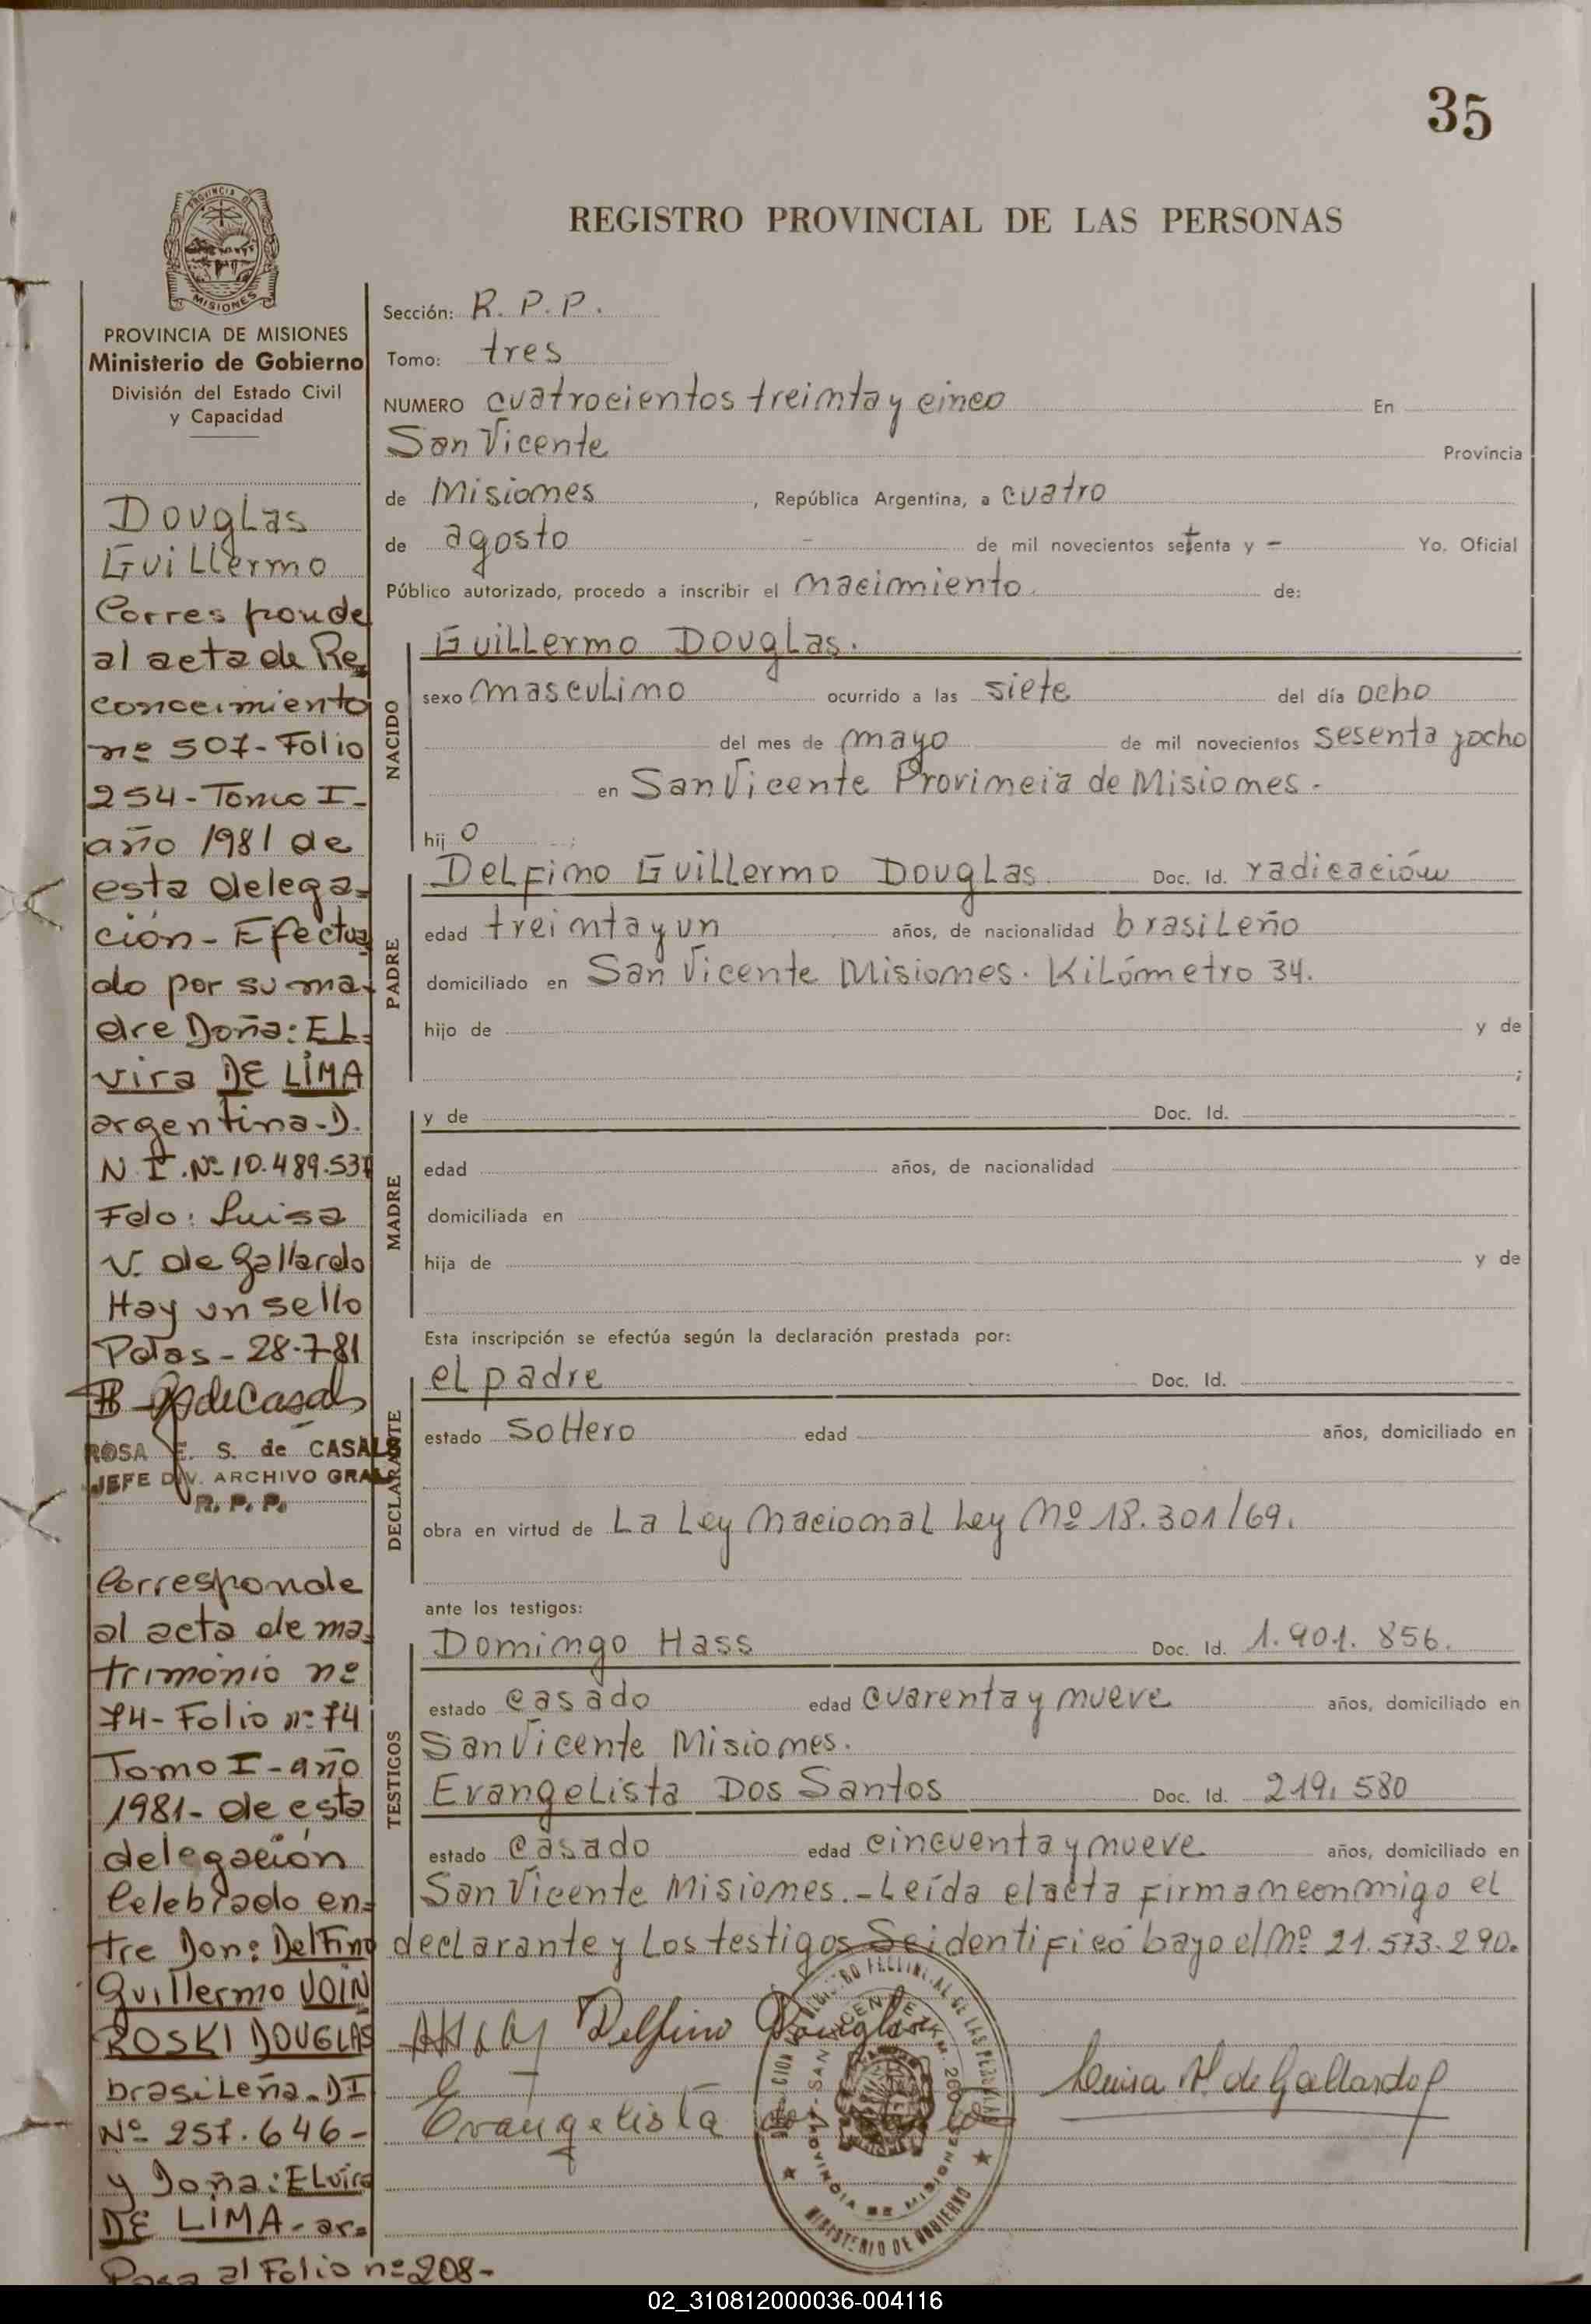 35
REGISTRO PROVINCIAL DE LAS PERSONAS
PROVINCIA DE MISIONES
Ministerio de Gobierno
División del Estado Civil
y Capacidad
Douglas
Guillermo
Corresponde
al acta de Re
conocimiento
nº 507-Folio
254-Tomo I-
año 1981 de
esta delega=
ción- Efectua
do por su ma-
dre Doña: EL-
vira DE LIMA
argentina-D.
N I. Nº 10.489.537
Fdo: Luisa
V. de Gallardo
Hay un sello
Pdas- 28-7-81
ROSA E. S. de CASALS
JEFE DIV. ARCHIVO GRAL
R. P. P.
Corresponde
al acta de ma=
trimonio nº
74-Folio nº 74
Tomo I-año
1981- de esta
delegación
Celebrado en=
tre Don: Delfino
Guillermo VOIN
ROSKI DOUGLAS
brasileña-DI
Nº 257.646-
y Doña: ELvira
DE LIMA-ar=
Pasa al Folio nº 208-
Sección: R. P. P.
Tomo: tres
NUMERO cuatrocientos treinta y cinco En
San Vicente Provincia
de Misiones, República Argentina, a cuatro
de agosto - de mil novecientos setenta y - Yo, Oficial
Público autorizado, procedo a inscribir el nacimiento. de:
NACIDO
Guillermo Douglas.
sexo masculino ocurrido a las siete del día ocho
del mes de mayo de mil novecientos sesenta yocho
en San Vicente Provincia de Misiones.
hij o
PADRE
Delfino Guillermo Douglas. Doc. Id. radicación
edad treinta y un años, de nacionalidad brasileño
domiciliado en San Vicente Misiones. Kilómetro 34.
hijo de y de
;
MADRE
y de Doc. Id.
edad años, de nacionalidad
domiciliada en
hija de y de
Esta inscripción se efectúa según la declaración prestada por:
DECLARANTE
el padre Doc. Id.
estado soltero edad años, domiciliado en
obra en virtud de La Ley Nacional Ley Nº 18.301/69.
ante los testigos:
TESTIGOS
Domingo Hass Doc. Id. 1.901.856.
estado casado edad cuarenta y nueve años, domiciliado en
San Vicente Misiones.
Evangelista Dos Santos Doc. Id. 219.580
estado casado edad cincuenta y nueve años, domiciliado en
San Vicente Misiones.-Leída el acta firman conmigo el
declarante y los testigos Se identificó bayo el Nº 21.573.290.
Delfino Douglas
Luisa V. de Gallardo
Evangelista dos
SAN VICENTE
PROVINCIA DE MISIONES
MINISTERIO DE GOBIERNO
02_310812000036-004116